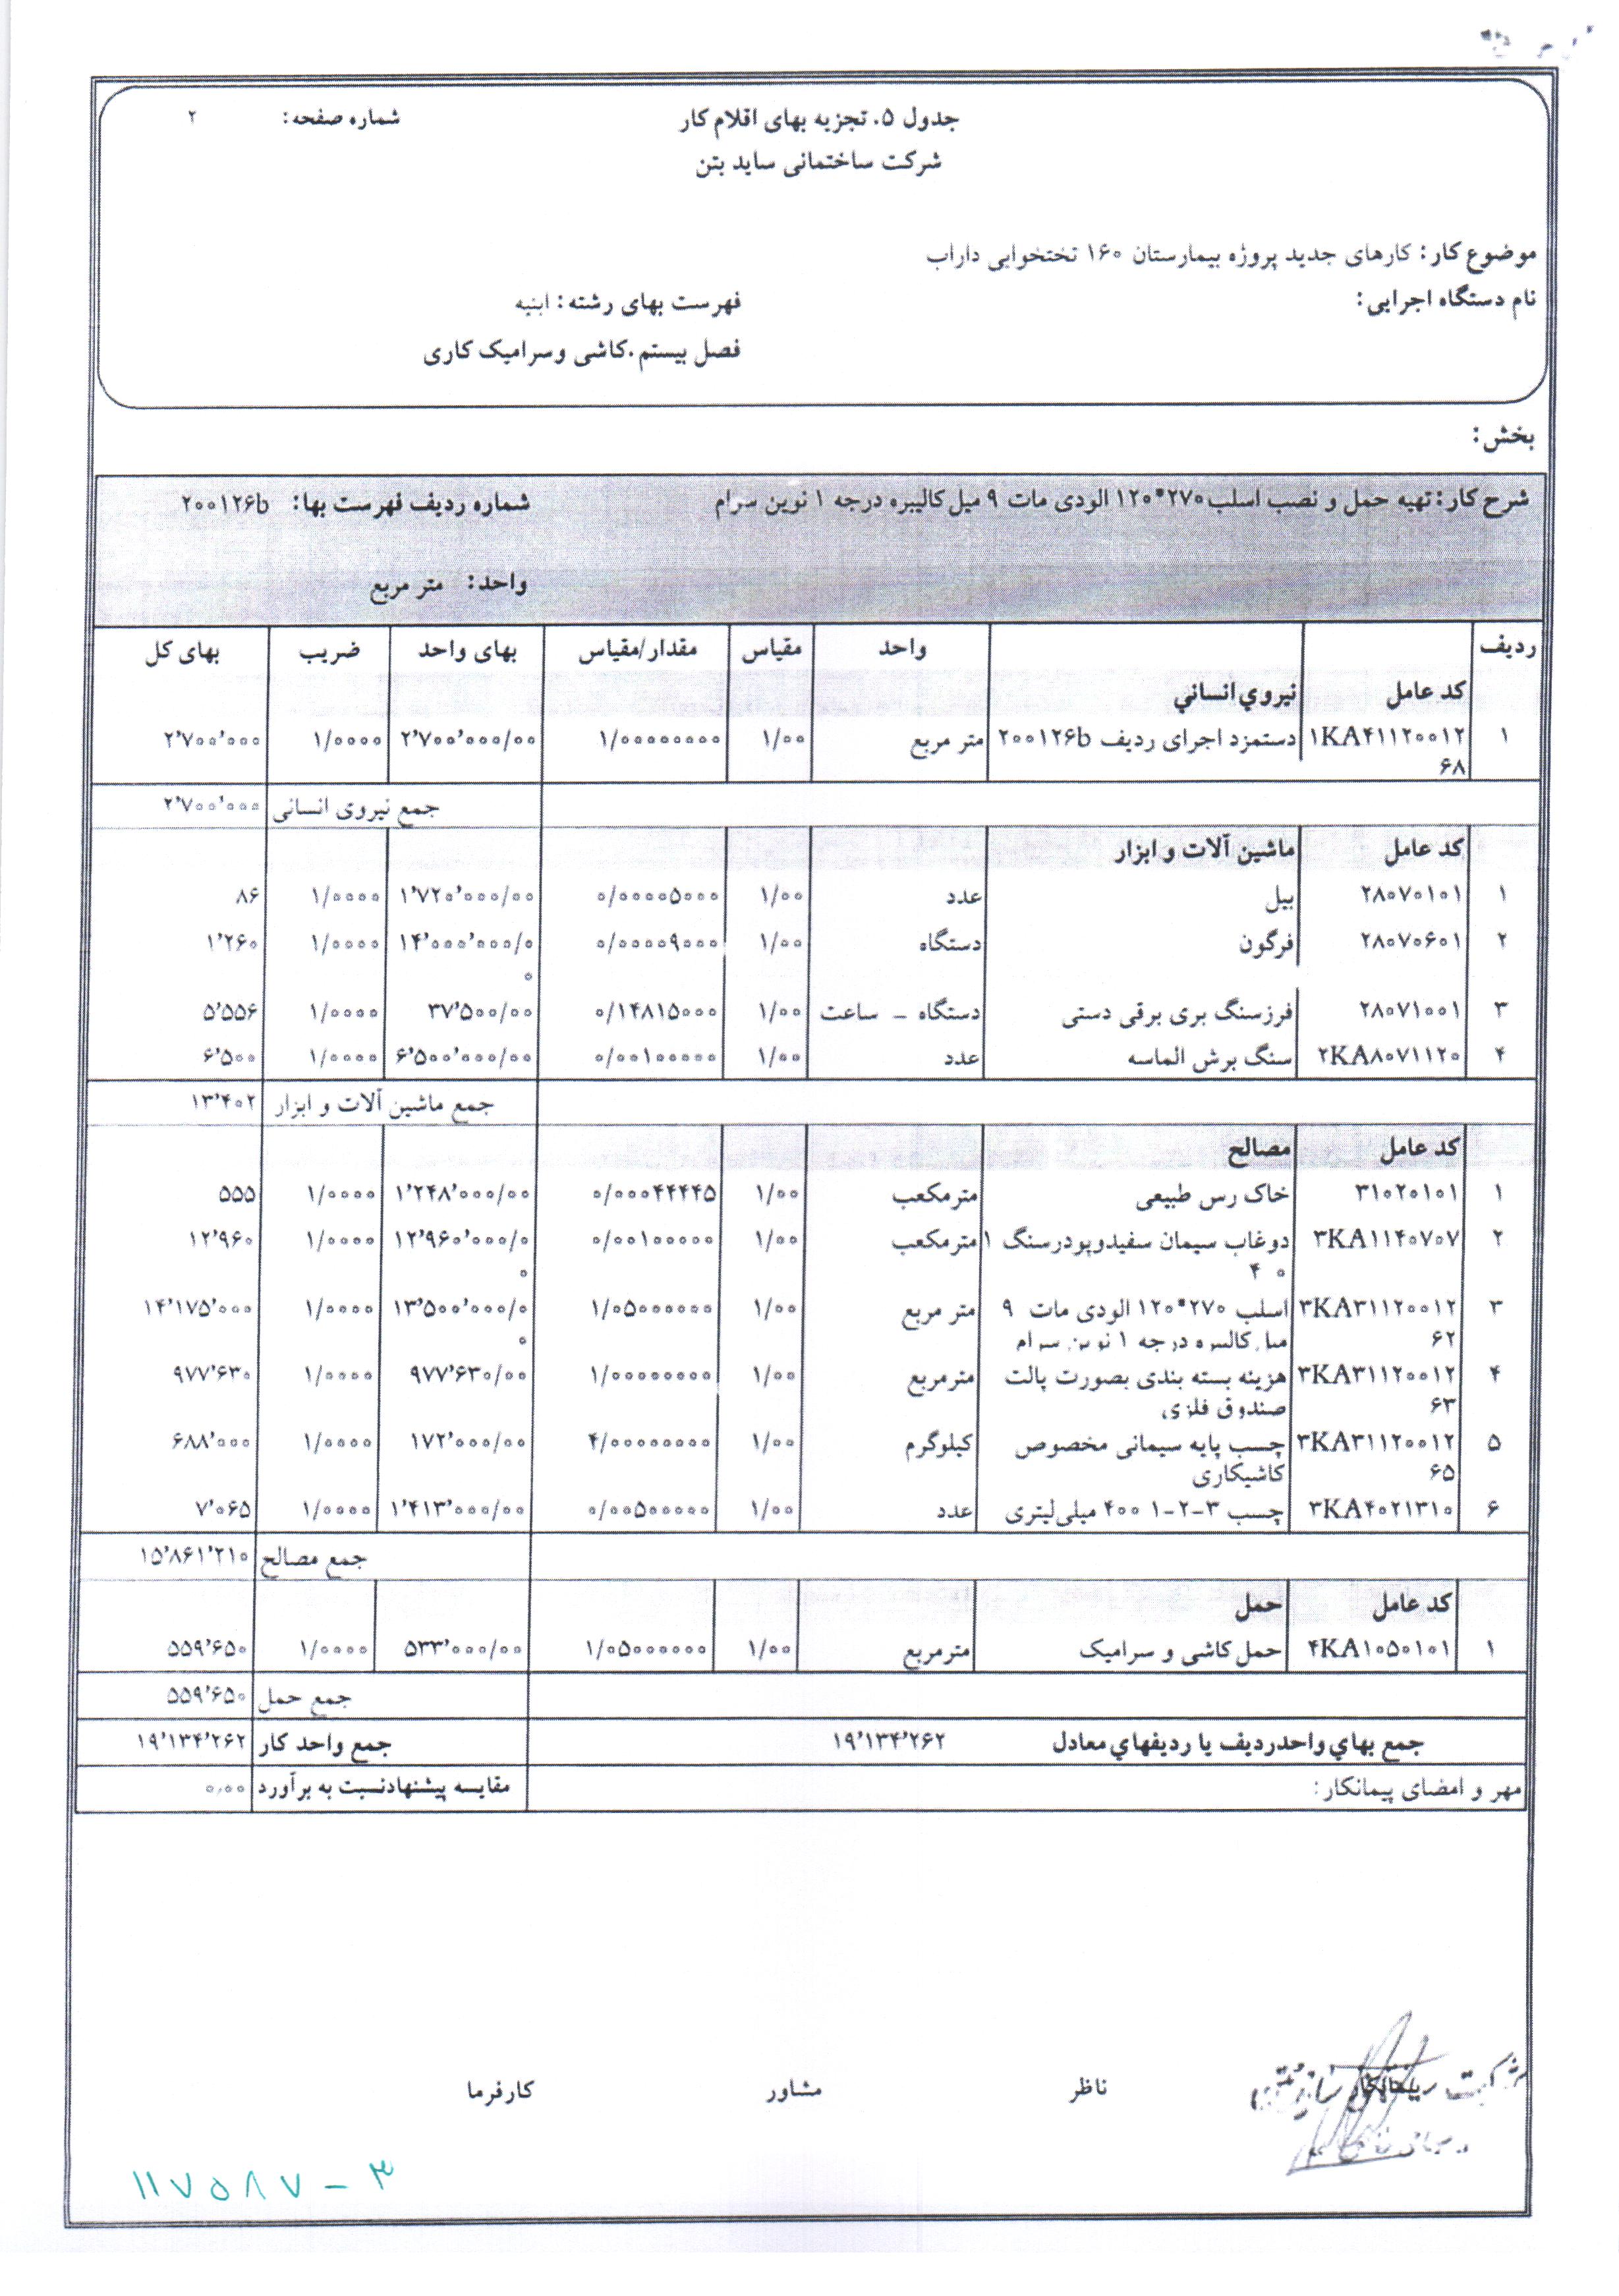 جدول ۵. تجزیه بهای اقلام کار
شماره صفحه: ۲
شرکت ساختمانی ساید بتن
موضوع کار: کارهای جدید پروژه بیمارستان ۱۶۰ تختخوابی داراب
نام دستگاه اجرایی:
فهرست بهای رشته: ابنیه
فصل بیستم.کاشی وسرامیک کاری
بخش:
شرح کار: تهیه حمل و نصب اسلب ۲۷۰*۱۲۰ الودی مات ۹ میل کالیبره درجه ۱ نوین سرام شماره ردیف فهرست بها: ۲۰۰۱۲۶b
واحد: متر مربع
ردیف واحد مقیاس مقدار/مقیاس بهای واحد ضریب بهای کل
کد عامل نیروي انساني
۱ ۱KA۴۱۱۲۰۰۱۲ دستمزد اجرای ردیف ۲۰۰۱۲۶b متر مربع ۱/۰۰ ۱/۰۰۰۰۰۰۰۰ ۲٬۷۰۰٬۰۰۰/۰۰ ۱/۰۰۰۰ ۲٬۷۰۰٬۰۰۰
۶۸
جمع نیروی انسانی ۲٬۷۰۰٬۰۰۰
کد عامل ماشین آلات و ابزار
۱ ۲۸۰۷۰۱۰۱ بیل عدد ۱/۰۰ ۰/۰۰۰۰۵۰۰۰ ۱٬۷۲۰٬۰۰۰/۰۰ ۱/۰۰۰۰ ۸۶
۲ ۲۸۰۷۰۶۰۱ فرگون دستگاه ۱/۰۰ ۰/۰۰۰۰۹۰۰۰ ۱۴٬۰۰۰٬۰۰۰/۰ ۱/۰۰۰۰ ۱٬۲۶۰
۰
۳ ۲۸۰۷۱۰۰۱ فرزسنگ بری برقی دستی دستگاه - ساعت ۱/۰۰ ۰/۱۴۸۱۵۰۰۰ ۳۷٬۵۰۰/۰۰ ۱/۰۰۰۰ ۵٬۵۵۶
۴ ۲KA۸۰۷۱۱۲۰ سنگ برش الماسه عدد ۱/۰۰ ۰/۰۰۱۰۰۰۰۰ ۶٬۵۰۰٬۰۰۰/۰۰ ۱/۰۰۰۰ ۶٬۵۰۰
جمع ماشین آلات و ابزار ۱۳٬۴۰۲
کد عامل مصالح
۱ ۳۱۰۲۰۱۰۱ خاک رس طبیعی مترمکعب ۱/۰۰ ۰/۰۰۰۴۴۴۴۵ ۱٬۲۴۸٬۰۰۰/۰۰ ۱/۰۰۰۰ ۵۵۵
۲ ۳KA۱۱۴۰۷۰۷ دوغاب سیمان سفیدوپودرسنگ ۱ مترمکعب ۱/۰۰ ۰/۰۰۱۰۰۰۰۰ ۱۲٬۹۶۰٬۰۰۰/۰ ۱/۰۰۰۰ ۱۲٬۹۶۰
۴ ۰ ۰
۳ ۳KA۳۱۱۲۰۰۱۲ اسلب ۲۷۰*۱۲۰ الودی مات ۹ متر مربع ۱/۰۰ ۱/۰۵۰۰۰۰۰۰ ۱۳٬۵۰۰٬۰۰۰/۰ ۱/۰۰۰۰ ۱۴٬۱۷۵٬۰۰۰
۶۲ میل کالیبره درجه ۱ نوین سرام ۰
۴ ۳KA۳۱۱۲۰۰۱۲ هزینه بسته بندی بصورت پالت مترمربع ۱/۰۰ ۱/۰۰۰۰۰۰۰۰ ۹۷۷٬۶۳۰/۰۰ ۱/۰۰۰۰ ۹۷۷٬۶۳۰
۶۳ صندوق فلزی
۵ ۳KA۳۱۱۲۰۰۱۲ چسب پایه سیمانی مخصوص کیلوگرم ۱/۰۰ ۴/۰۰۰۰۰۰۰۰ ۱۷۲٬۰۰۰/۰۰ ۱/۰۰۰۰ ۶۸۸٬۰۰۰
۶۵ کاشیکاری
۶ ۳KA۴۰۲۱۳۱۰ چسب ۳-۲-۱ ۴۰۰ میلی‌لیتری عدد ۱/۰۰ ۰/۰۰۵۰۰۰۰۰ ۱٬۴۱۳٬۰۰۰/۰۰ ۱/۰۰۰۰ ۷٬۰۶۵
جمع مصالح ۱۵٬۸۶۱٬۲۱۰
کد عامل حمل
۱ ۴KA۱۰۵۰۱۰۱ حمل کاشی و سرامیک مترمربع ۱/۰۰ ۱/۰۵۰۰۰۰۰۰ ۵۳۳٬۰۰۰/۰۰ ۱/۰۰۰۰ ۵۵۹٬۶۵۰
جمع حمل ۵۵۹٬۶۵۰
جمع بهاي واحدردیف یا ردیفهاي معادل ۱۹٬۱۳۴٬۲۶۲ جمع واحد کار ۱۹٬۱۳۴٬۲۶۲
مهر و امضای پیمانکار: مقایسه پیشنهادنسبت به برآورد ۰.۰۰
پیمانکار ناظر مشاور کارفرما
۱۱۷۵۸۷-۳